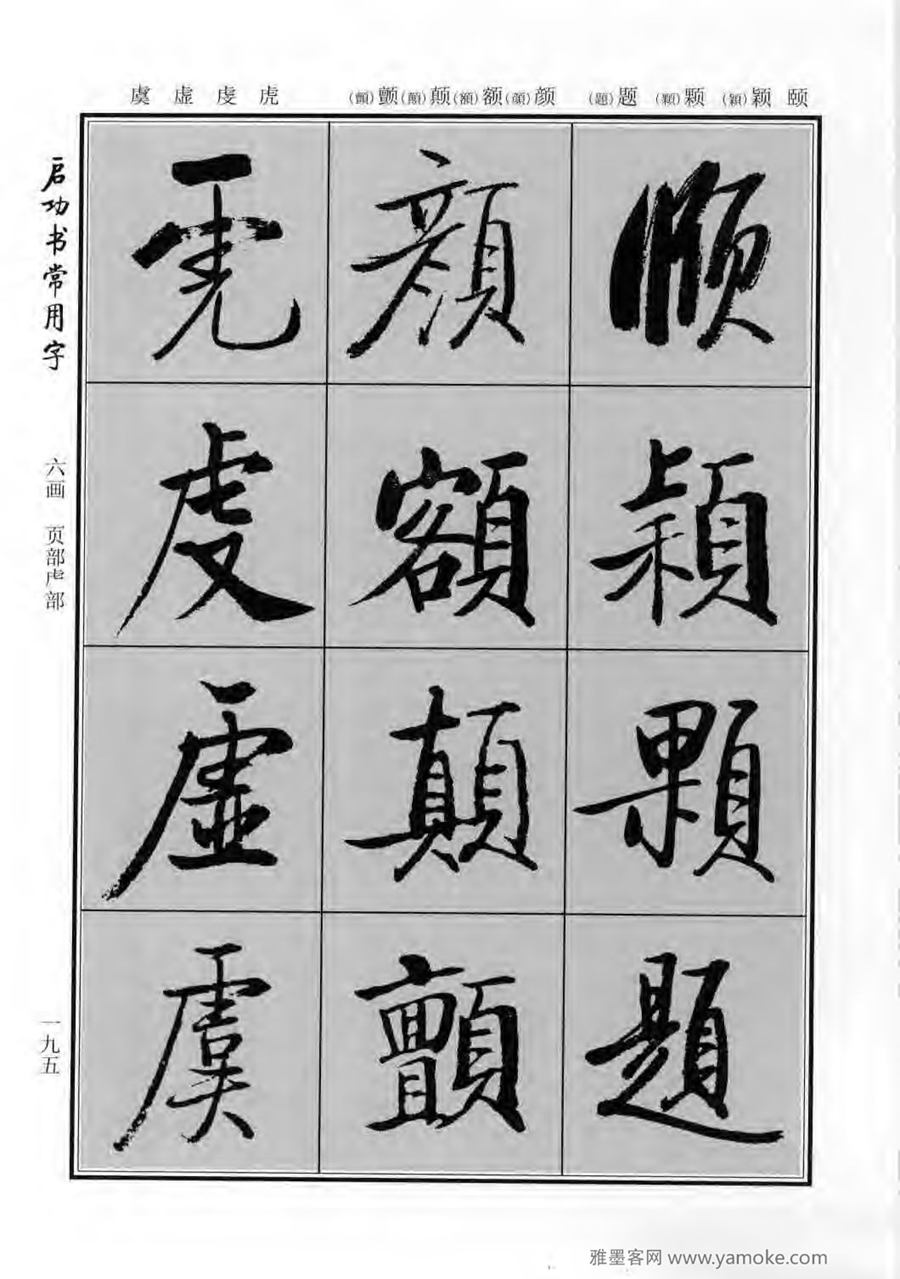 颐颖(穎)颗(顆)题(題)
颜(顔)额(額)颠(顛)颤(顫)
虎虔虚虞
颐穎顆題
顔額顛顫
虎虔虚虞
启功书常用字
六画 页部虍部
一九五
雅墨客网 www.yamoke.com